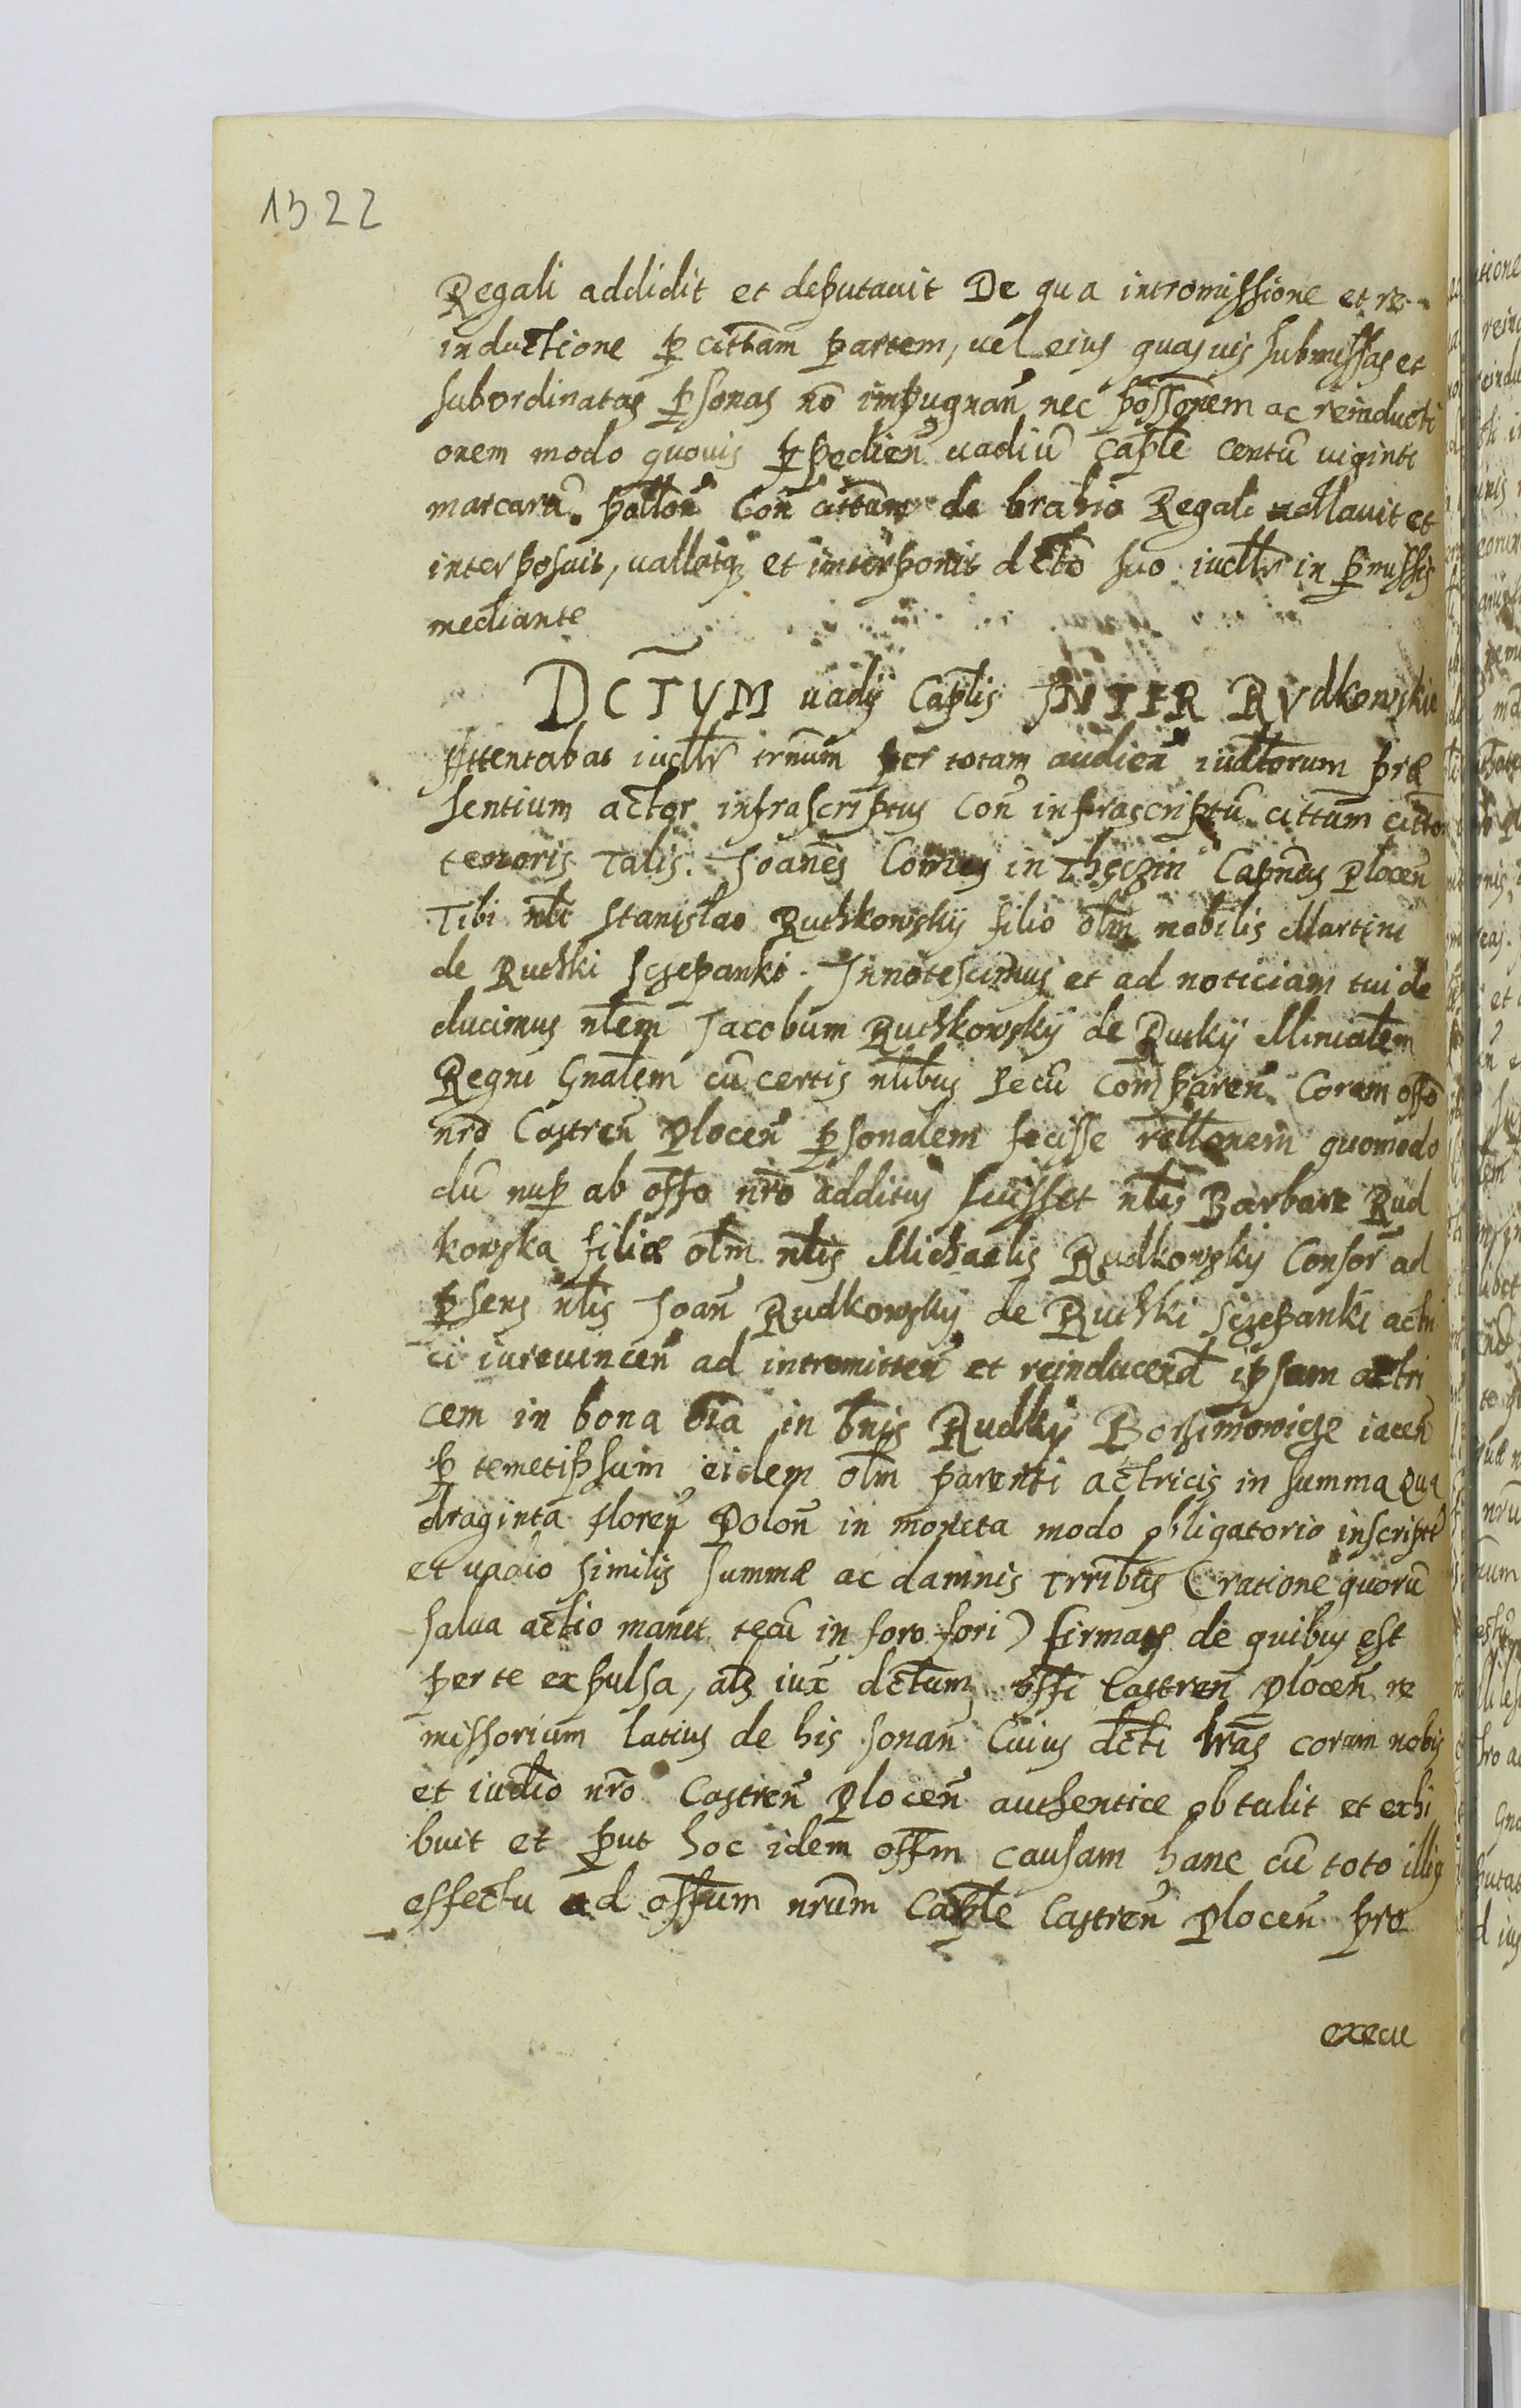 1322
Regali addidit et deputauit De qua intromissione et re-
inductione p̱ cittãm partem, uel eius quasuis submissas et
subordinatas p̱sonas nõ impugnañ nec possonem ac reinducti
onem modo quouis p̱pedieñ uadiũ caplẽ centũ viginti
marcarũ polloñ Coñ cittãm de brahio Regali uallauit et
interposuit, uallatqȝ et interponit dctõ suo iudlr in p̱missis
mediante
DCT̃VM uadij Capl̃is INTER RVdkowskie
Attentabat iudlr trnũm per totam audieñ iudtorum præ
sentium actor infrascriptus Coñ infrascriptũ cittãm cittõn
tenoris Talis. Joanẽs Comes in Theczin Capnẽus Ploceñ
Tibi nlĩ Stanislao Ruthkowskij filio olm̃ nobilis Martini
de Ruthki Sczepanki. Innotescimus et ad noticiam tui de
ducimus nlẽm Jacobum Ruthkowskij de Rutkij Ministlẽm
Regni Gnalẽm cũ certis nlibũs secũ compareñ Coram offõ
nrõ Castreñ Ploceñ p̱sonalem fecisse relltonem quomodo
dũ nup̱ ab offo nrõ additus fuisset nlĩs Barbare Rud
kowska filiæ olm̃ nlĩs Michaelis Rudkowskij Consor̃ ad
p̱sens nlĩs Joañ Rudkowskij de Ruthki Sczepanki actri
ci iureuinceñ ad intromitteñ et reinducend̃ ipsam actri
cem in bona oĩa in bñis Rudkij Borzimowicze iaceñ
p̱ temetipsum eidem olm̃ parenti actricis in summa qua
draginta floreñ Poloñ in moneta modo obligatorio inscripti
et vadio similis summæ ac damnis trribũs (ratione quorũ
salua actio manet tecũ in foro fori) firmatis de quibus est
per te expulsa, alȝ iux̃ dctũm offĩ Castreñ Ploceñ re
missorium latius de his sonañ Cuius dctĩ lrãs coram nobis
et iudĩo nrõ Castreñ Ploceñ authentice obtulit et exhi
buit et p̱ut hoc idem offm̃ causam hanc cũ toto illiq
effectu ad offũm nrũm Caplẽ Castreñ Ploceñ pro
execu